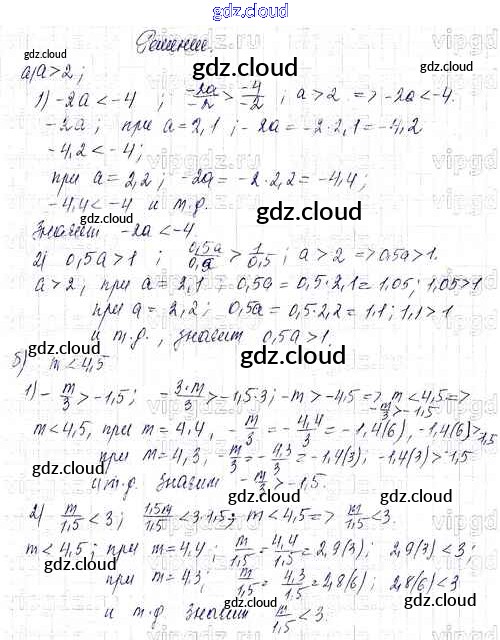 gdz.cloud
Решение.
gdz.cloud
gdz.cloud
а) a > 2 ;
1) -2a < -4 ; -2a/-2 > -4/-2 ; a > 2 => -2a < -4.
-2a ; при a = 2,1 ; -2a = -2·2,1 = -4,2
-4,2 < -4 ;
gdz.cloud
gdz.cloud
при a = 2,2 ; -2a = -2·2,2 = -4,4 ;
-4,4 < -4 и т.д.
gdz.cloud
Значит -2a < -4.
2) 0,5a > 1 ; 0,5a/0,5 > 1/0,5 ; a > 2 => 0,5a > 1.
gdz.cloud
a > 2 ; при a = 2,1 ; 0,5a = 0,5·2,1 = 1,05 ; 1,05 > 1
при a = 2,2 ; 0,5a = 0,5·2,2 = 1,1 ; 1,1 > 1
и т.д., значит 0,5a > 1.
gdz.cloud
gdz.cloud
gdz.cloud
б) m < 4,5
1) -m/3 > -1,5 ; -3·m/3 > -1,5·3 ; -m > -4,5 => m < 4,5 => -m/3 > -1,5
m < 4,5, при m = 4,4, -m/3 = -4,4/3 = -1,4(6), -1,4(6) > -1,5
при m = 4,3, -m/3 = -4,3/3 = -1,4(3) ; -1,4(3) > -1,5
gdz.cloud
gdz.cloud
gdz.cloud
и т.д. значит -m/3 > -1,5.
2) m/1,5 < 3 ; 1,5m/1,5 < 3·1,5 ; m < 4,5 => m/1,5 < 3.
gdz.cloud
m < 4,5 ; при m = 4,4 ; m/1,5 = 4,4/1,5 = 2,9(3) ; 2,9(3) < 3 ;
при m = 4,3 ; m/1,5 = 4,3/1,5 = 2,8(6) ; 2,8(6) < 3
gdz.cloud
gdz.cloud
и т.д. значит m/1,5 < 3.